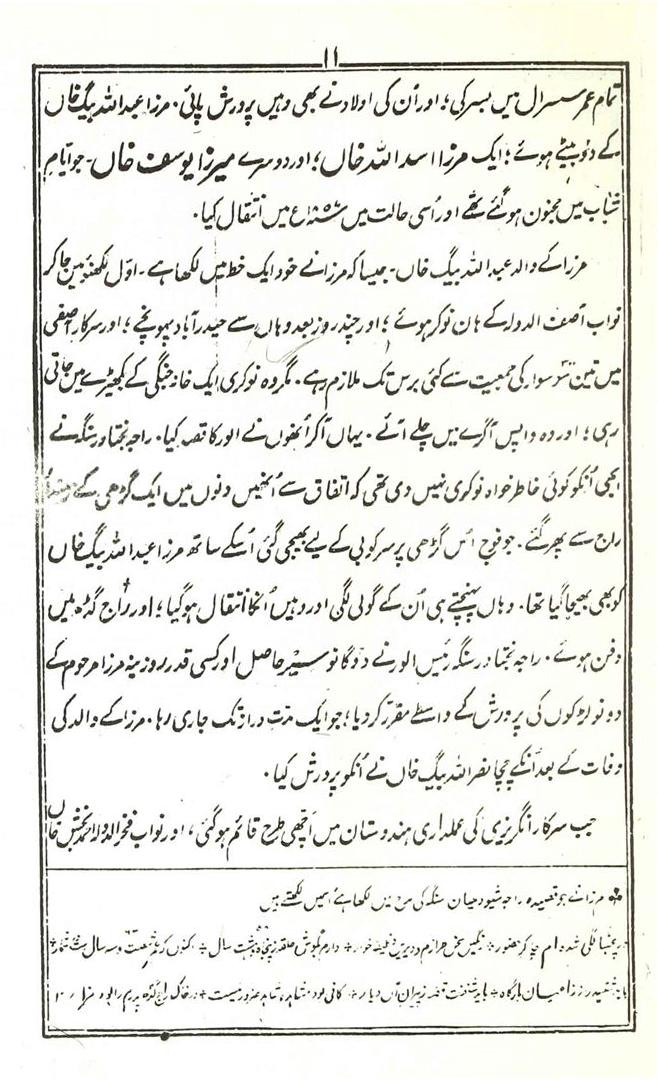 ۱۱
تمام عمر سسرال میں بسر کی؛ اور اُن کی اولاد نے بھی وہیں پرورش پائی. مرزا عبداللہ بیگ خاں
کے دو بیٹے ہوئے؛ ایک مرزا اسد اللہ خاں؛ اور دوسرے میرزا یوسف خاں - جو ایّامِ
شباب میں مجنون ہو گئے تھے اور اُسی حالت میں ۱۸۵۷ع میں انتقال کیا.
مرزا کے والد عبداللہ بیگ خاں - جیسا کہ مرزا نے خود ایک خط میں لکھا ہے - اوّل لکھنؤ میں جا کر
نواب آصف الدولہ کے ہاں نوکر ہوئے؛ اور چند روز بعد وہاں سے حیدرآباد پہونچے؛ اور سرکار آصفی
میں تین سو سوار کی جمعیت سے کئی برس تک ملازم رہے. مگر وہ نوکری ایک خانہ جنگی کے بکھیڑے میں جاتی
رہی؛ اور وہ واپس آگرے میں چلے آئے. یہاں آکر اُنھوں نے الور کا قصد کیا. راجہ بختاور سنگہ نے
ابھی اُنکو کوئی خاطر خواہ نوکری نہیں دی تھی کہ اتفاق سے اُنھیں دنوں میں ایک گڑھی کے
راج سے پھر گئے. جو فوج اُس گڑھی پر سرکوبی کے لیے بھیجی گئی اُسکے ساتھ مرزا عبداللہ بیگ خاں
کو بھی بھیجا گیا تھا. وہاں پہنچتے ہی اُن کے گولی لگی اور وہیں اُنکا انتقال ہو گیا؛ اور راج گڈہ میں
دفن ہوئے. راجہ بختاور سنگہ رئیس الور نے دو گانو سیر حاصل اور کسی قدر روزینہ مرزا مرحوم کے
دونو لڑکوں کی پرورش کے واسطے مقرر کر دیا؛ جو ایک مدّت دراز تک جاری رہا. مرزا کے والد کی
وفات کے بعد اُنکے چچا نصر اللہ بیگ خاں نے اُنکو پرورش کیا.
جب سرکار انگریزی کی عملداری ہندوستان میں اچھی طرح قائم ہو گئی، اور نواب فخر الدولہ احمد بخش خاں
مرزا نے جو قصیدہ راجہ شیودھیان سنگہ کی مدح میں لکھا ہے اُسمیں لکھتے ہیں
شدہ ام چاکر حضور * دارم بگوش حلقہ ز پنجاہ و ہشت سال * اکنوں کہ شصت و سہ سال
باید شنید راز * کافی بود مشاہدہ شاہد ضرور نیست * در خاک راج گڈہ پدرم را بود مزار ۱۲